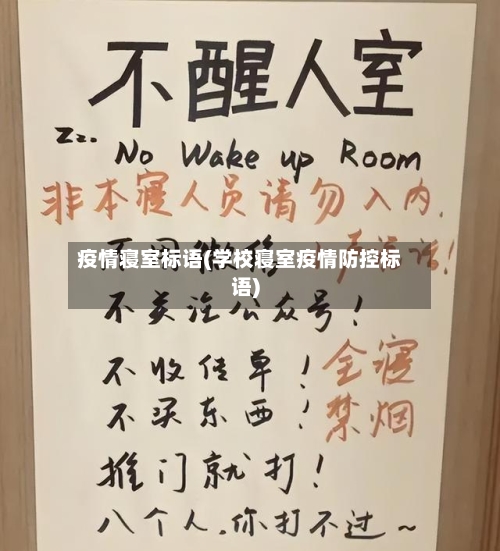 不醒人室
Zzz. No Wake up Room
非本寝人员请勿入内.
疫情寝室标语(学校寝室疫情防控标
语)
不关注公众号!
不收传单! 全寝
不买东西! 禁烟
推门就打!
八个人.你打不过~